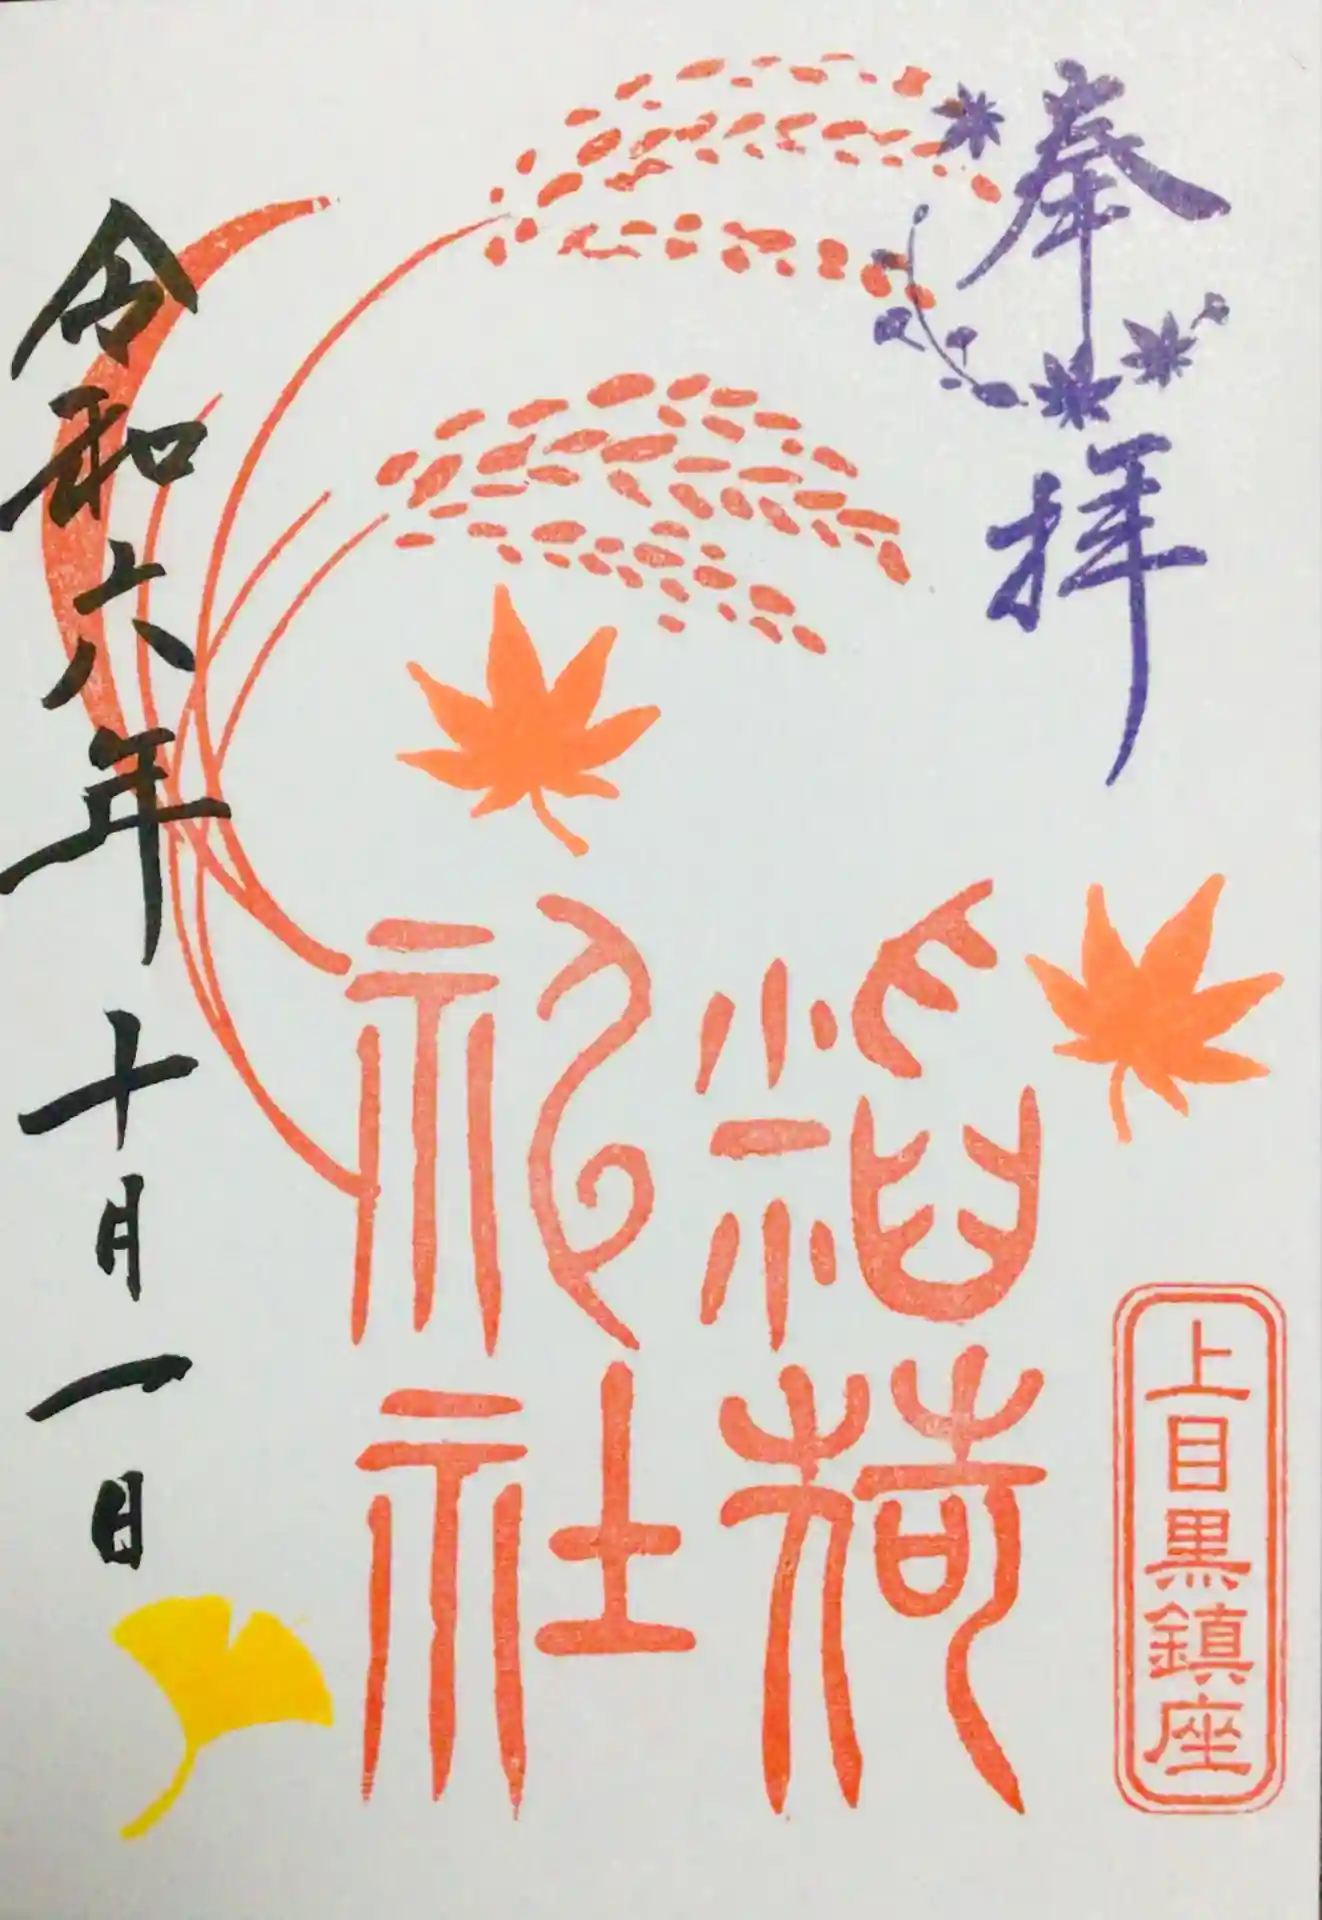 奉拝
上目黒鎮座
稲荷
神社
令和六年十月一日